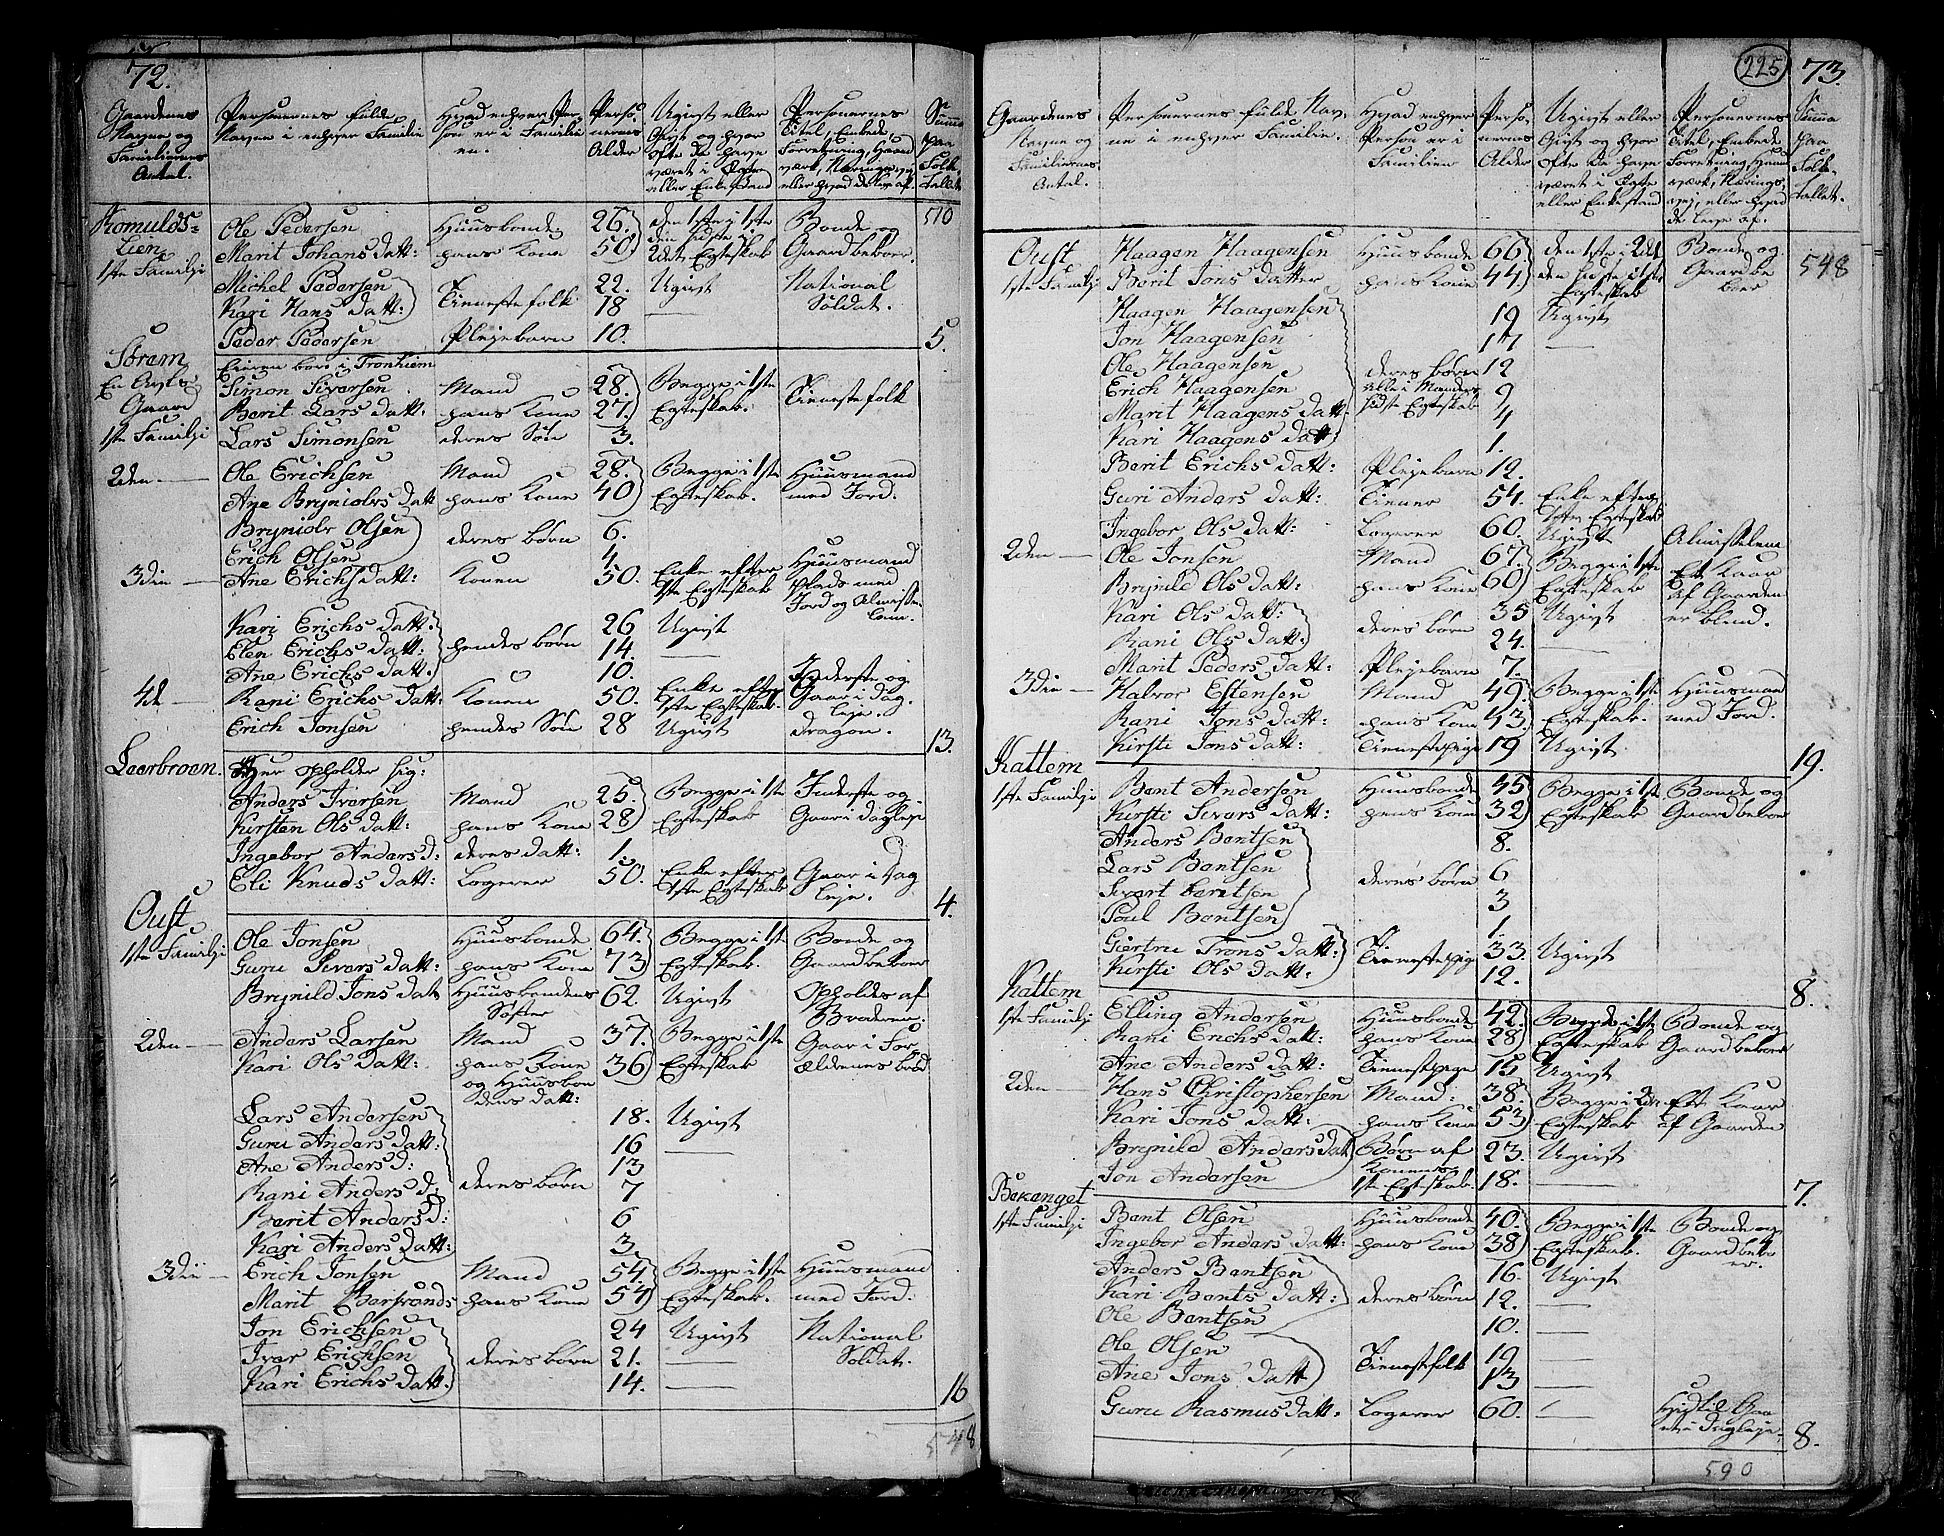 72.
Gaardenes Navne og Familiernes Antal.
Personernes fulde Navne i enhver Familie
Hvad enhver Person er i Familien.
Personernes Alder
Ugivt eller Givt og hvor ofte de have været i Ægte eller Enkestand
Personernes Titel, Embede, Forretning, Haandværk, Næringsvej eller hvad de leve af.
Summa paa Folketallet
510
Romulds-Lien
1ste Familji
Ole Pedersen Huusbonde 26. den 1ste i 1ste Bonde
Marit Johans datt: hans Kone 50 den sidste i 2det Egteskab Gaardbeboer.
Michel Pedersen Tienestefolk 22. Ugivt National Soldat.
Kari Hans datt: 18 —
Peder Pedersen Plejebarn 10. 5.
Støren
En Avls Gaard
1ste Familji
Eieren boer i Tronhiem
Simon Siversen Mand 28. Begge i 1ste Tienestefolk
Berit Lars datt: hans Kone 27. Egteskab.
Lars Simonsen deres Søn 3.
2den — Ole Erichsen Mand 28 Begge i 1ste Huusmand
Ane Bryniolvs datt hans Kone 40 Egteskab. med Jord.
Bryniolv Olsen deres børn 6.
Erich Olsen 4.
3die — Ane Erichs datt: Konen 50. Enke efter 1ste Egteskab Huusmand Plads med Jord og Almisse lem.
Kari Erichs datt. hendes børn 26 Ugivt
Elen Erichs datt: 14. —
Ane Erichs datt: 10.
4de — Rani Erichs datt: Konen 50. Enke efter 1ste Egteskab. Inderste og Gaar i dag leje.
Erich Jonsen hendes Søn 28 Ugivt dragon. 13.
Leerbroen. Her opholder sig:
Anders Iversen Mand 25. Begge i 1ste Inderste og
Kirsten Ols datt: hans Kone 28 Egteskab Gaar i dagleje
Ingebor Anders d: deres datt: 1.
Eli Knuds datt: Logerer 50. Enke efter 1ste Egteskab. Gaar i dag leje. 4.
Oust
1ste Familji
Ole Jonsen Huusbonde 64. Begge i 1ste Bonde og
Guru Sivers datt: hans Kone 73 Egteskab. Gaardbeboer
Brynild Jons dat Huusbondens Søster 62. Ugivt Opholdes af Broderen.
2den — Anders Larsen Mand 37. Begge i 1ste Gaar i For
Kari Ols datt: hans Kone og Huusbondens datt: 36 Egteskab ældrenes brød
Lars Andersen 18. Ugivt
Guru Anders datt: 16 —
Ane Anders d: 13
Rani Anders d: deres børn 7
Berit Anders d: 6
Kari Anders datt: 3.
3die — Erich Jonsen Mand 54. Begge i 1ste Huusmand
Marit hans Kone 54 Egteskab. med Jord.
Jon Erichsen 24 Ugivt National
Iver Erichsen deres børn 21. — Soldat.
Kari Erichs datt. 14. — 16
548
225
73.
Gaardenes Navne og Familiernes Antal.
Personernes fulde Navne i enhver Familie.
Hvad enhver Person er i Familien
Personernes Alder
Ugivt eller Givt og hvor ofte de have været i Ægte eller Enkestand
Personernes Titel, Embede Forretning, Haandværk, Næringsvej, eller hvad de leve af.
Summa paa Folketallet.
548
Oust
1ste Familji
Haagen Haagensen Huusbonde 66 den 1ste i 2det Bonde og
Berit Jons datter hans Kone 44. den sidste i 1ste Egteskab Gaardbeboer
Haagen Haagensen 19 Ugivt
Jon Haagensen 17 —
Ole Haagensen deres børn 12
Erich Haagensen alle i Mandens sidste Egteskab 9
Marit Haagens datt: 4
Kari Haagens datt: 1.
Berit Erichs datt: Plejebarn 12.
Guri Anders datt: Tiener 54. Enke efter 1ste Egteskab
Ingebor Ols datt: Logerer 60. Ugivt Almisselem
2den — Ole Jonsen Mand 67. Begge i 1ste Et Kaar
Brynild Ols datt: hans Kone 60 Egteskab af Gaarden
Kari Ols datt: deres børn 35 Ugivt er blind.
Rani Ols datt: 24. —
Marit Peders datt: Plejebarn 7. —
3die — Halvor Estensen Mand 49. Begge i 1ste Huusmand
Rani Jons datt: hans Kone 43. Egteskab. med Jord.
Kirsti Jons datt: Tienestepige 19 Ugivt. 19.
Kattem
1ste Familji
Bent Andersen Huusbonde 45 Begge i 1ste Bonde og
Kirsti Sivers datt: hans Kone 32 Egteskab Gaardbeboer
Anders Bentsen 8.
Lars Bentsen deres børn 6
Sivert bentsen 3
Poul Bentsen 1.
Giertru Trons datt: Tienestepige 33. Ugivt
Kirsti Ols datt: 12. 8.
Kattem
1ste Familji
Elling Andersen Huusbonde 42. Begge i 1ste Bonde og
Rani Erichs datt: hans Kone 28 Egteskab Gaardbeboer
Ane Anders datt: Tienestepige 15 Ugivt
2den — Hans Christophersen Mand: 38. Begge i 2det Et Kaar
Kari Jons datt: hans Kone 53 Egteskab af Gaarden
Brynild Anders datt Børn af 23. Ugivt
Jon Andersen Konens 1ste Egteskab. 18. — 7.
1ste Familji
Bent Olsen Huusbonde 40. Begge i 1ste Bonde og
Ingebor Anders datt: hans Kone 38 Egteskab. Gaardbeboer.
Anders Bentsen 16. Ugivt
Kari Bents datt: deres børn 12. —
Ole Bentsen 10. —
Ole Olsen Tienestefolk 19 —
Ane Jons datt 13 —
Guru Rasmus datt: Logerer 60. — 8.
590